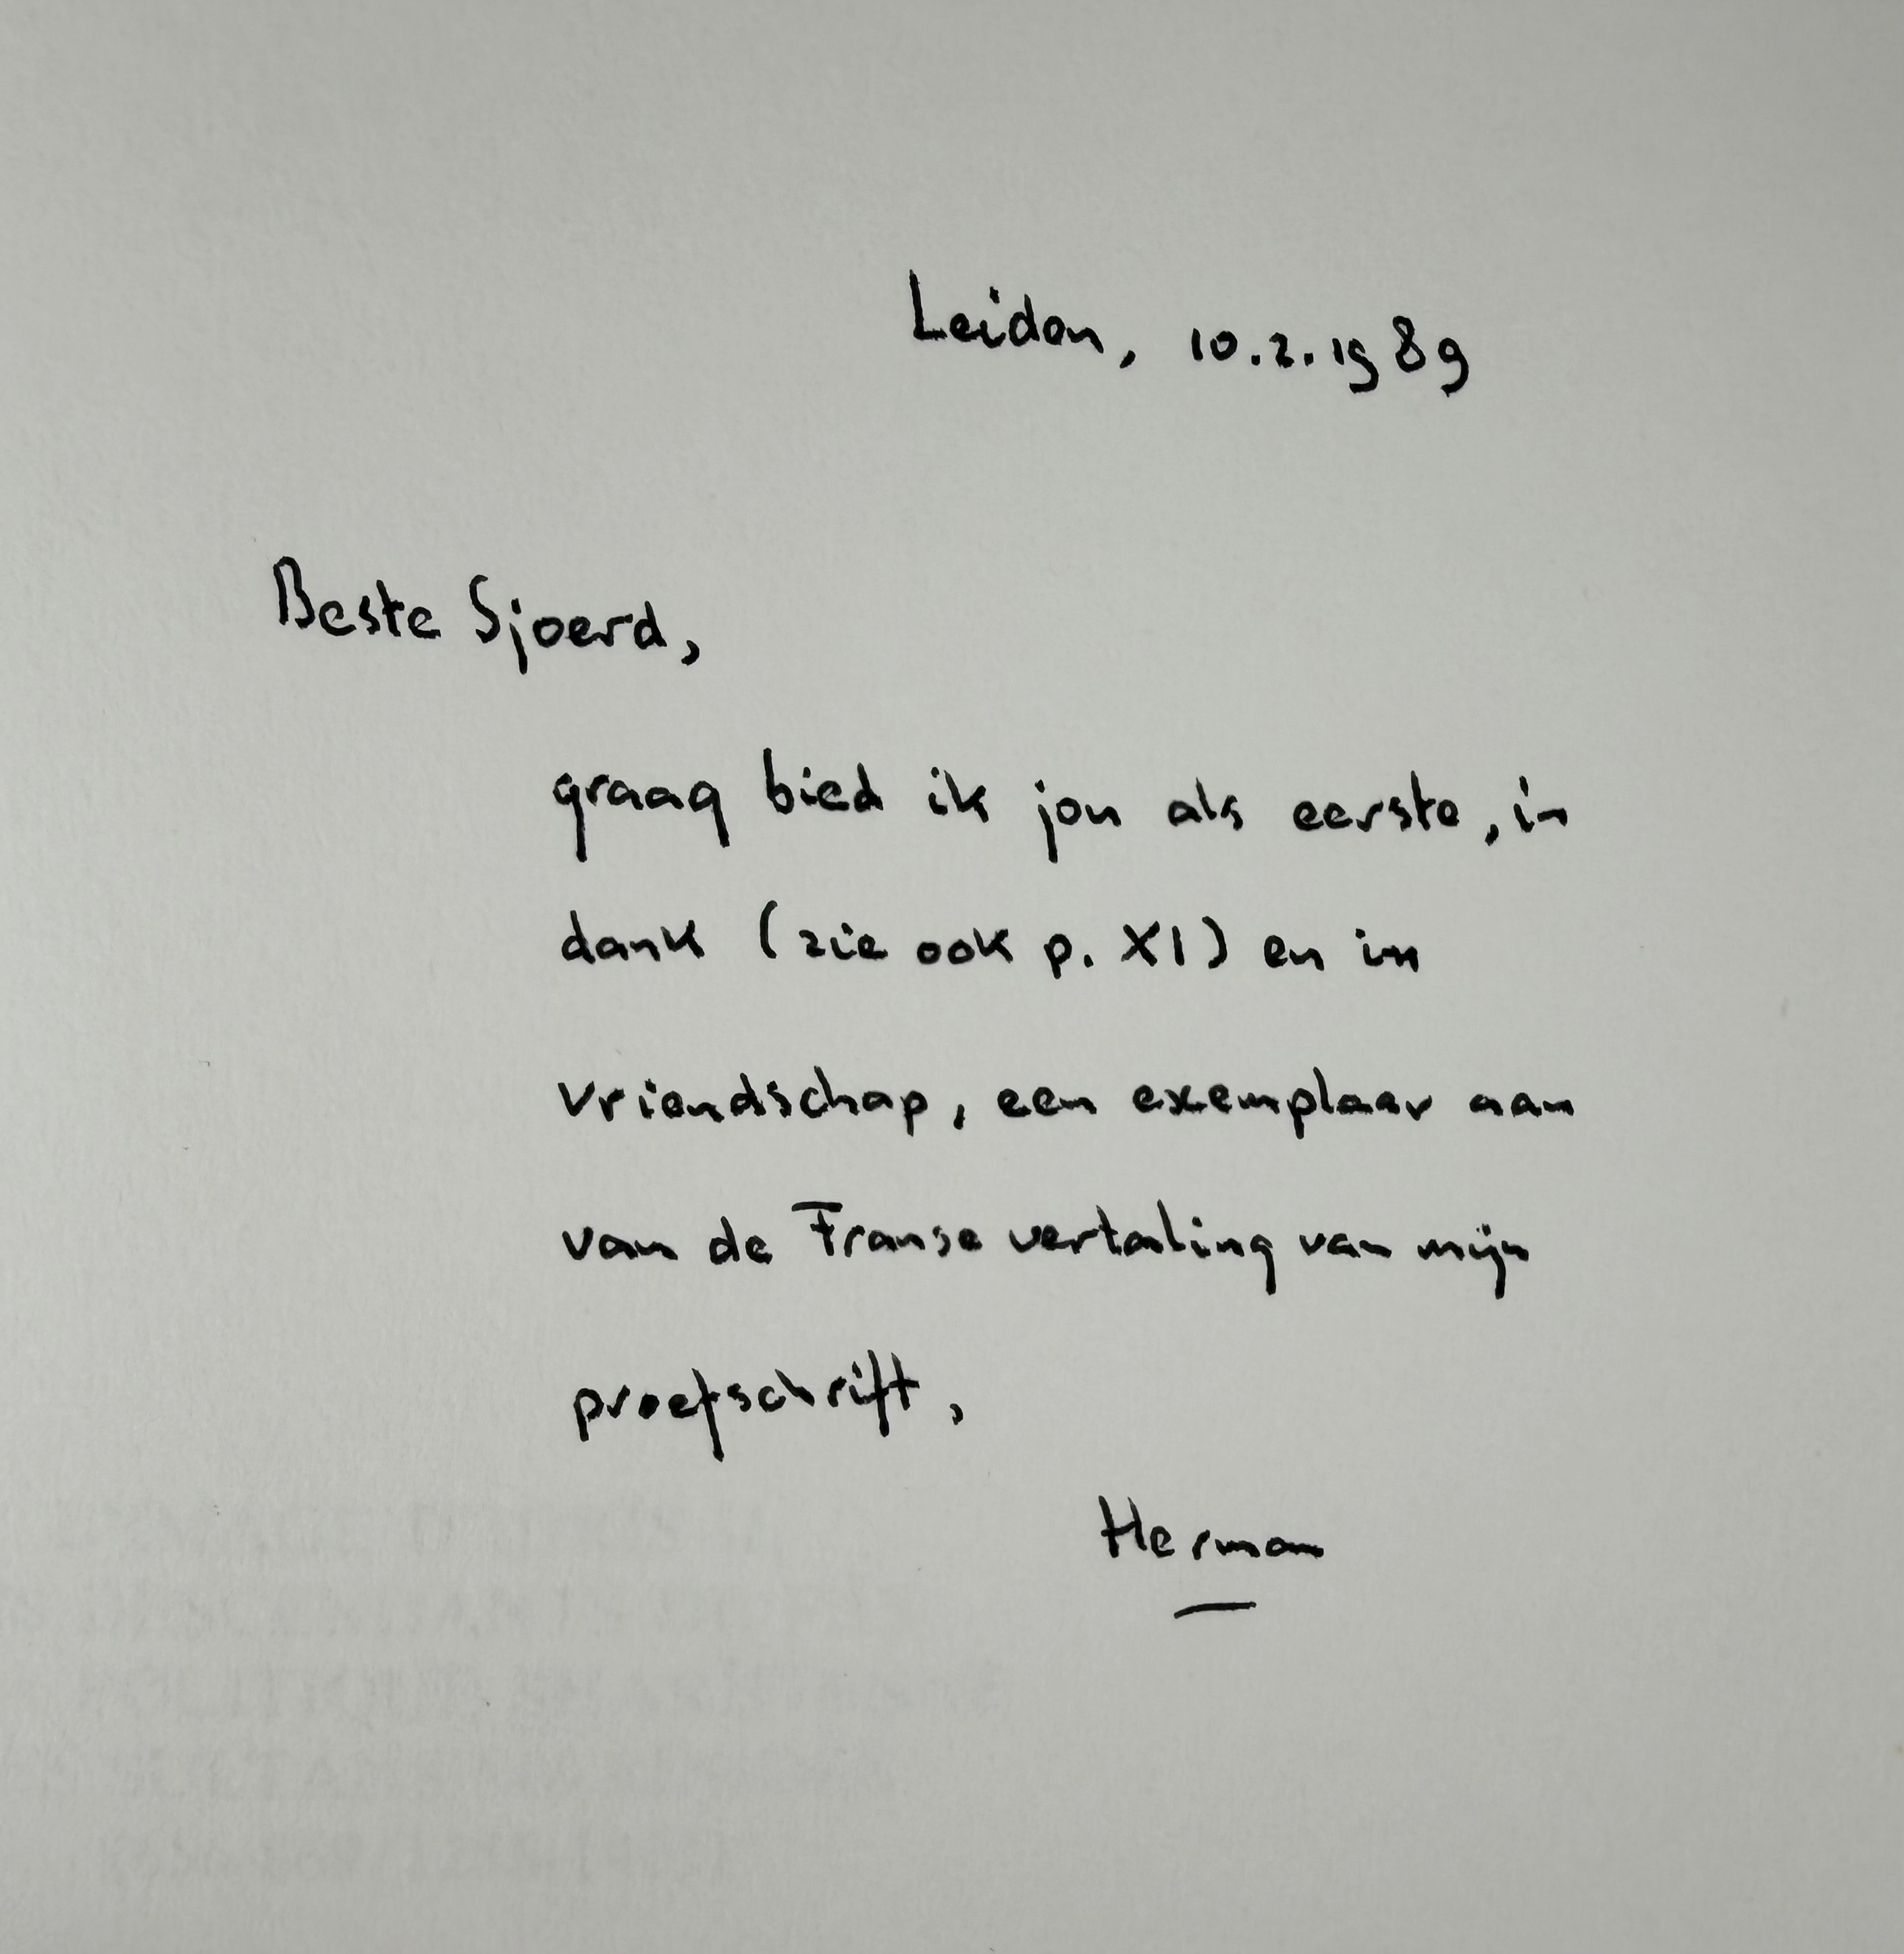 Leiden, 10.2.1989
Beste Sjoerd,
graag bied ik jou als eerste, in
dank (zie ook p. XI) en in
vriendschap, een exemplaar aan
van de Franse vertaling van mijn
proefschrift,
Herman